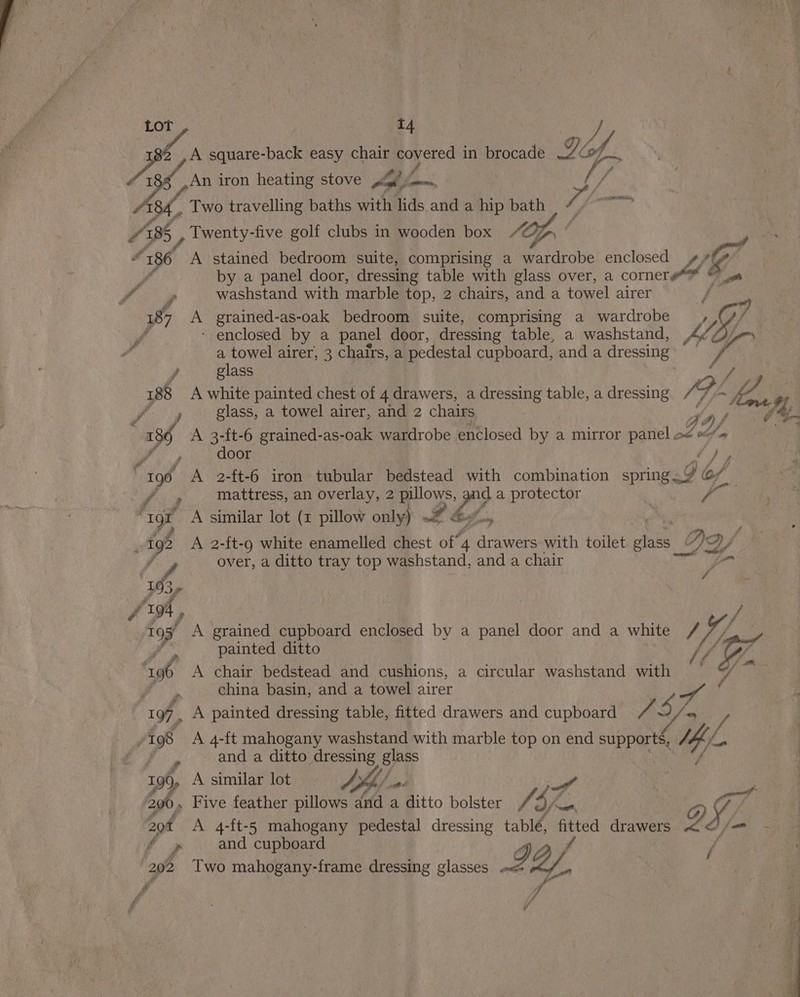 LOT 14
182 A square-back easy chair covered in brocade
183 An iron heating stove
184 Two travelling baths with lids and a hip bath
185 Twenty-five golf clubs in wooden box
186 A stained bedroom suite, comprising a wardrobe enclosed
by a panel door, dressing table with glass over, a corner
washstand with marble top, 2 chairs, and a towel airer
187 A grained-as-oak bedroom suite, comprising a wardrobe
enclosed by a panel door, dressing table, a washstand,
a towel airer, 3 chairs, a pedestal cupboard, and a dressing
glass
188 A white painted chest of 4 drawers, a dressing table, a dressing
glass, a towel airer, and 2 chairs
189 A 3-ft-6 grained-as-oak wardrobe enclosed by a mirror panel
door
190 A 2-ft-6 iron tubular bedstead with combination spring
mattress, an overlay, 2 pillows, and a protector
191 A similar lot (1 pillow only)
192 A 2-ft-9 white enamelled chest of 4 drawers with toilet glass
over, a ditto tray top washstand, and a chair
193
194
195 A grained cupboard enclosed by a panel door and a white
painted ditto
196 A chair bedstead and cushions, a circular washstand with
china basin, and a towel airer
197 A painted dressing table, fitted drawers and cupboard
198 A 4-ft mahogany washstand with marble top on end supports,
and a ditto dressing glass
199 A similar lot
200 Five feather pillows and a ditto bolster
201 A 4-ft-5 mahogany pedestal dressing table, fitted drawers
and cupboard
202 Two mahogany-frame dressing glasses